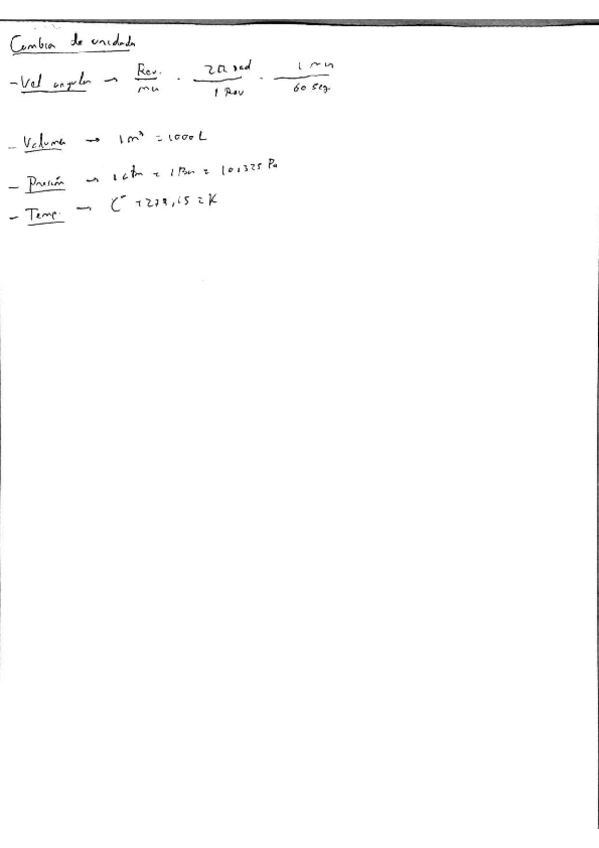 Cambio de unidades
- Vel angular → Rev. / min · 2π rad / 1 Rev · 1 min / 60 seg.
- Volumen → 1 m³ = 1000 L
- Presión → 1 atm = 1 Bar = 101325 Pa
- Temp. → C° + 273,15 = K